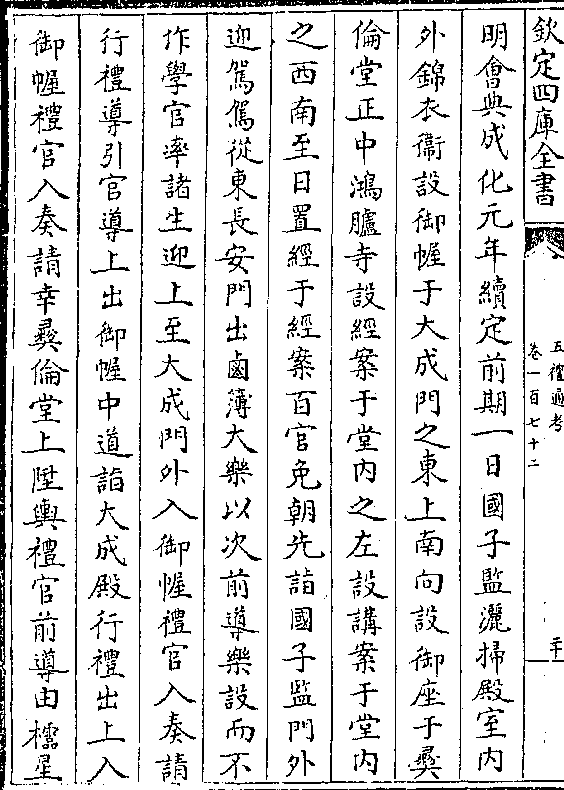 欽定四庫全書
五禮通考
卷一百七十二
二十
明會典成化元年續定前期一日國子監灑掃殿室内
外錦衣衞設御幄于大成門之東上南向設御座于彞
倫堂正中鴻臚寺設經案于堂内之左設講案于堂内
之西南至日置經于經案百官免朝先詣國子監門外
迎駕駕從東長安門出鹵簿大樂以次前導樂設而不
作學官率諸生迎上至大成門外入御幄禮官入奏請
行禮導引官導上出御幄中道詣大成殿行禮出上入
御幄禮官入奏請幸彞倫堂上陞輿禮官前導由櫺星